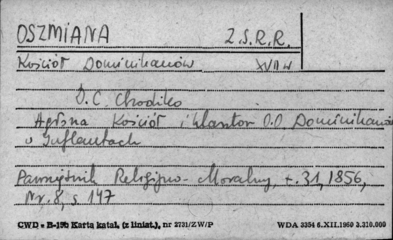 OSZMIANA Z.S.R.R.
Kościół Dominikanów XVII w
O.C. Chodźko
Agłona Kościół i klasztor O.O. Dominikanów
w Inflantach
Pamiętnik Religijno-Moralny, t. 31, 1856,
Nr. 8, s. 147
CWD - B-19b Karta katal. (z liniat.), nr 3731/Z/WP WDA 3354 6.XII.1960 3.310.000